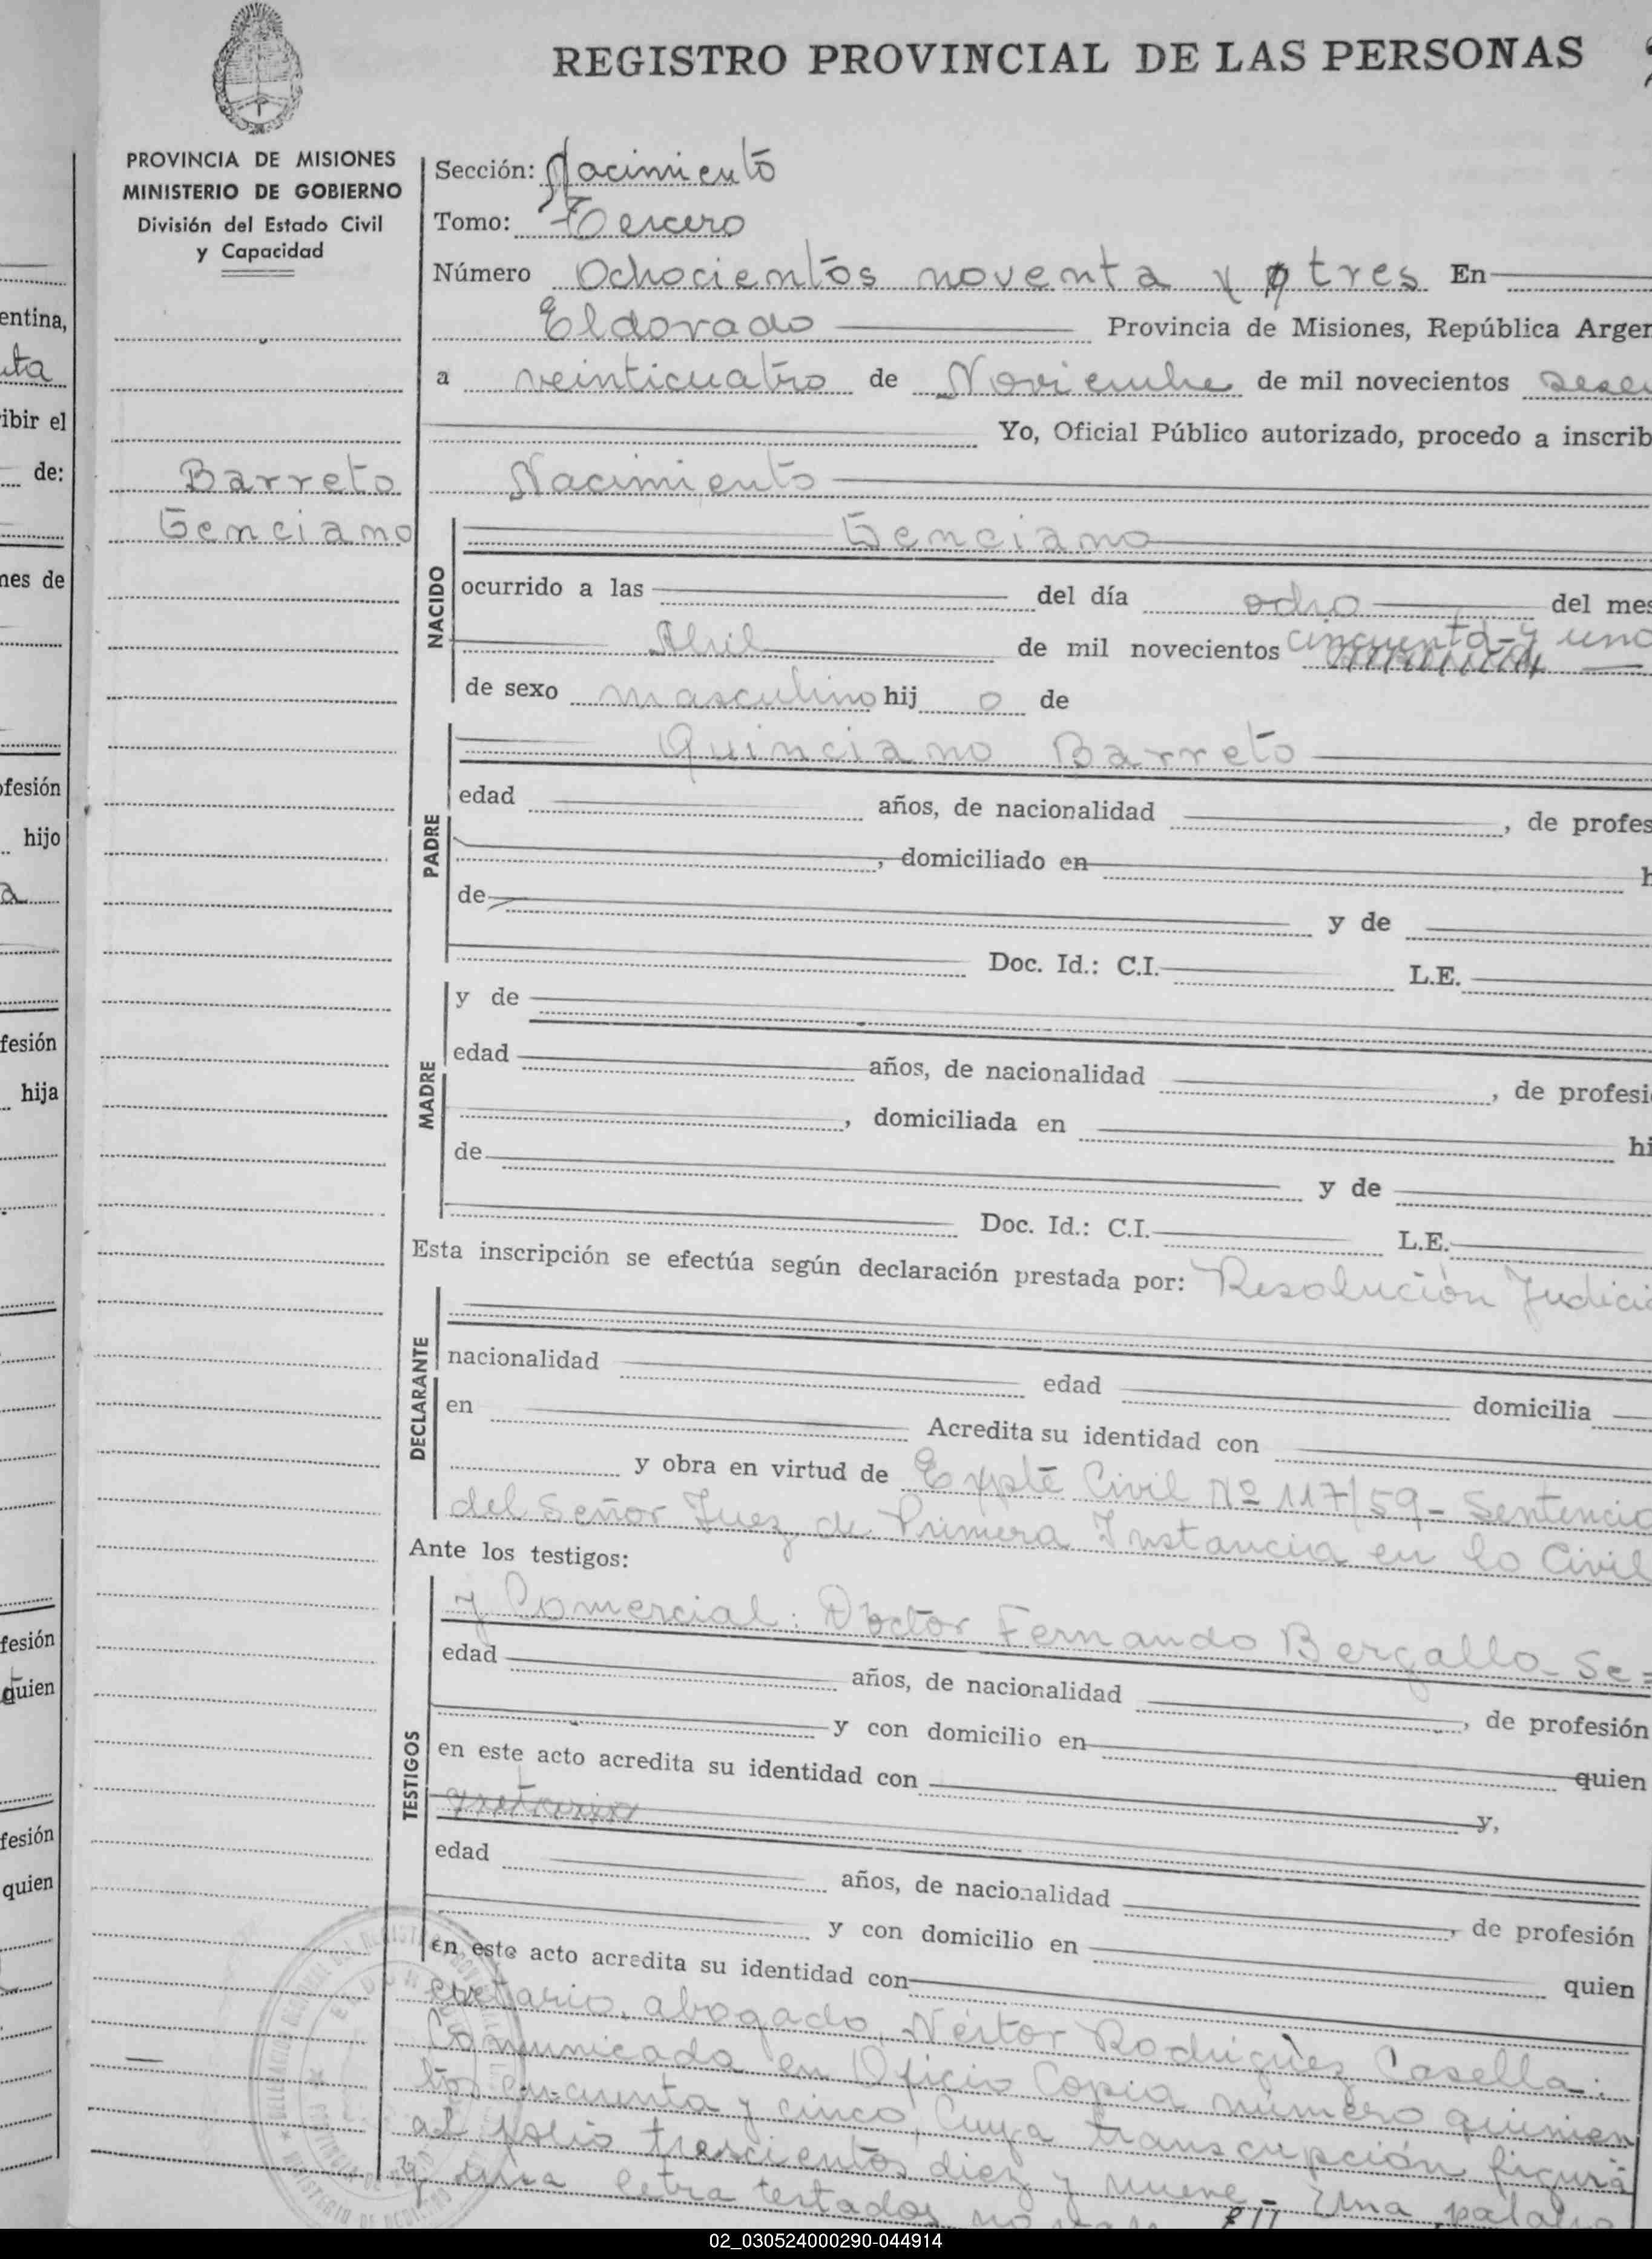 REGISTRO PROVINCIAL DE LAS PERSONAS
PROVINCIA DE MISIONES
MINISTERIO DE GOBIERNO
División del Estado Civil
y Capacidad
Sección: Nacimiento
Tomo: Tercero
Número Ochocientos noventa y tres En
Eldorado Provincia de Misiones, República Argen
a veinticuatro de Noviembre de mil novecientos sesen
Yo, Oficial Público autorizado, procedo a inscrib
Barreto
Genciano
Nacimiento
NACIDO
Genciano
ocurrido a las del día ocho del mes
Abril de mil novecientos cincuenta y uno
de sexo masculino hijo de
PADRE
Quinciano Barreto
edad años, de nacionalidad , de profes
, domiciliado en h
de y de
Doc. Id.: C.I. L.E.
MADRE
y de
edad años, de nacionalidad , de profesi
, domiciliada en hi
de y de
Doc. Id.: C.I. L.E.
Esta inscripción se efectúa según declaración prestada por: Resolución Judicia
DECLARANTE
nacionalidad edad domicilia
en Acredita su identidad con
y obra en virtud de Expte Civil Nº 117/59 - Sentencia
del Señor Juez de Primera Instancia en lo Civil
Ante los testigos:
TESTIGOS
y Comercial: Doctor Fernando Bergallo - Se=
edad años, de nacionalidad , de profesión
y con domicilio en quien
en este acto acredita su identidad con y,
edad años, de nacionalidad , de profesión
y con domicilio en quien
en este acto acredita su identidad con
cretario, abogado, Néstor Rodríguez Casella:
Comunicada en Oficio Copia número quinien
tos cincuenta y cinco, cuya transcripción figura
al folio trescientos diez y nueve - Una palabra
y una letra testados no
entina,
ibir el
de:
nes de
ofesión
hijo
fesión
hija
fesión
quien
fesión
quien
02_030524000290-044914